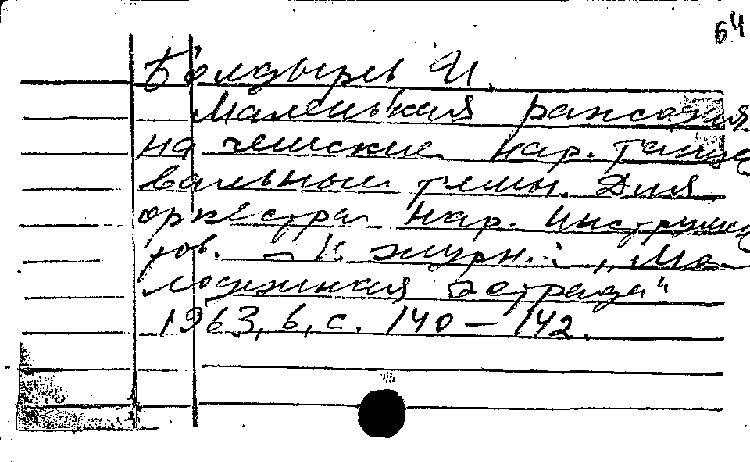 64
Болдырев И.
Маленькая рапсодия
на чешские нар. танце
вальные темы. Для
оркестра нар. инструмен
тов. – В журн.: „Мо
лодежная эстрада“
1963, 6, с. 140 – 142.